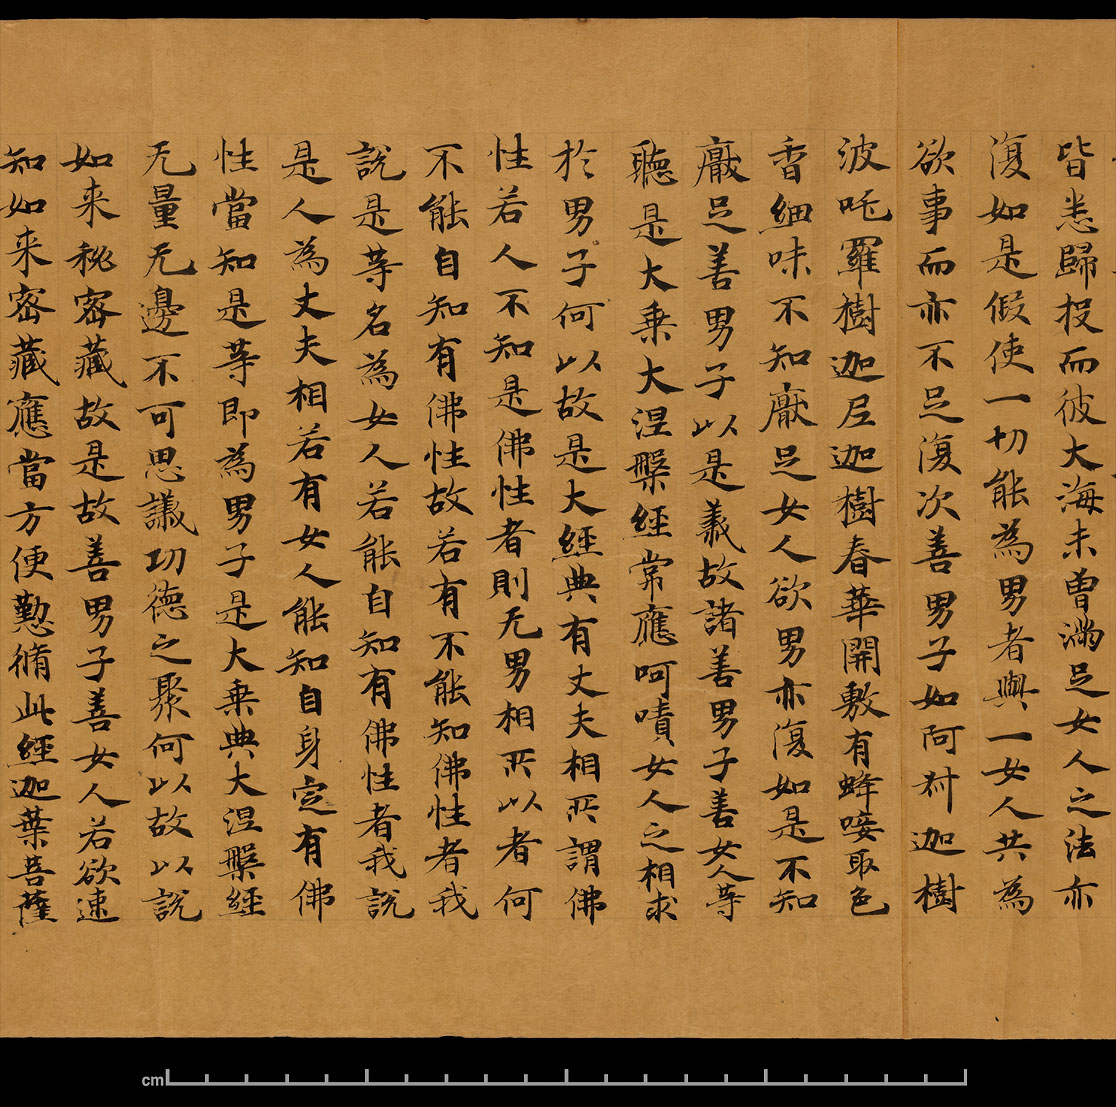 皆悉歸投而彼大海未曾滿足女人之法亦
復如是假使一切能為男者與一女人共為
欲事而亦不足復次善男子如阿叔迦樹
波吒羅樹迦尼迦樹春華開敷有蜂唼取色
香細味不知厭足女人欲男亦復如是不知
厭足善男子以是義故諸善男子善女人等
聽是大乘大涅槃經常應呵嘖女人之相求
於男子何以故是大經典有丈夫相所謂佛
性若人不知是佛性者則无男相所以者何
不能自知有佛性故若有不能知佛性者我
說是等名為女人若能自知有佛性者我說
是人為丈夫相若有女人能知自身定有佛
性當知是等即為男子是大乘典大涅槃經
无量无邊不可思議功德之聚何以故以說
如来秘密藏故是故善男子善女人若欲速
知如来密藏應當方便懃脩此經迦葉菩薩